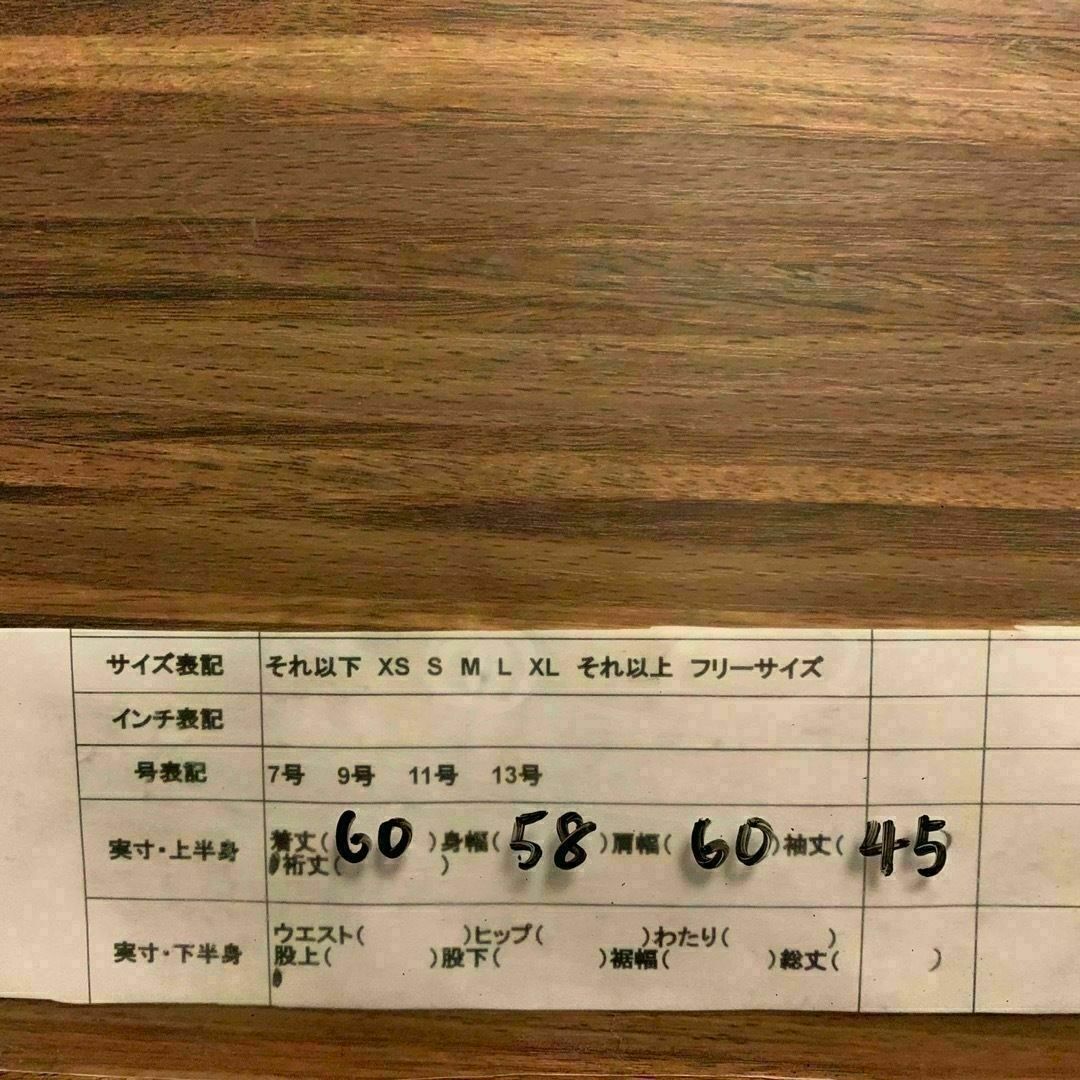 サイズ表記 それ以下 XS S M L XL それ以上 フリーサイズ
インチ表記
号表記 7号 9号 11号 13号
実寸・上半身 着丈(60)身幅(58)肩幅(60)袖丈(45)
裄丈( )
実寸・下半身 ウエスト( )ヒップ( )わたり( )
股上( )股下( )裾幅( )総丈( )